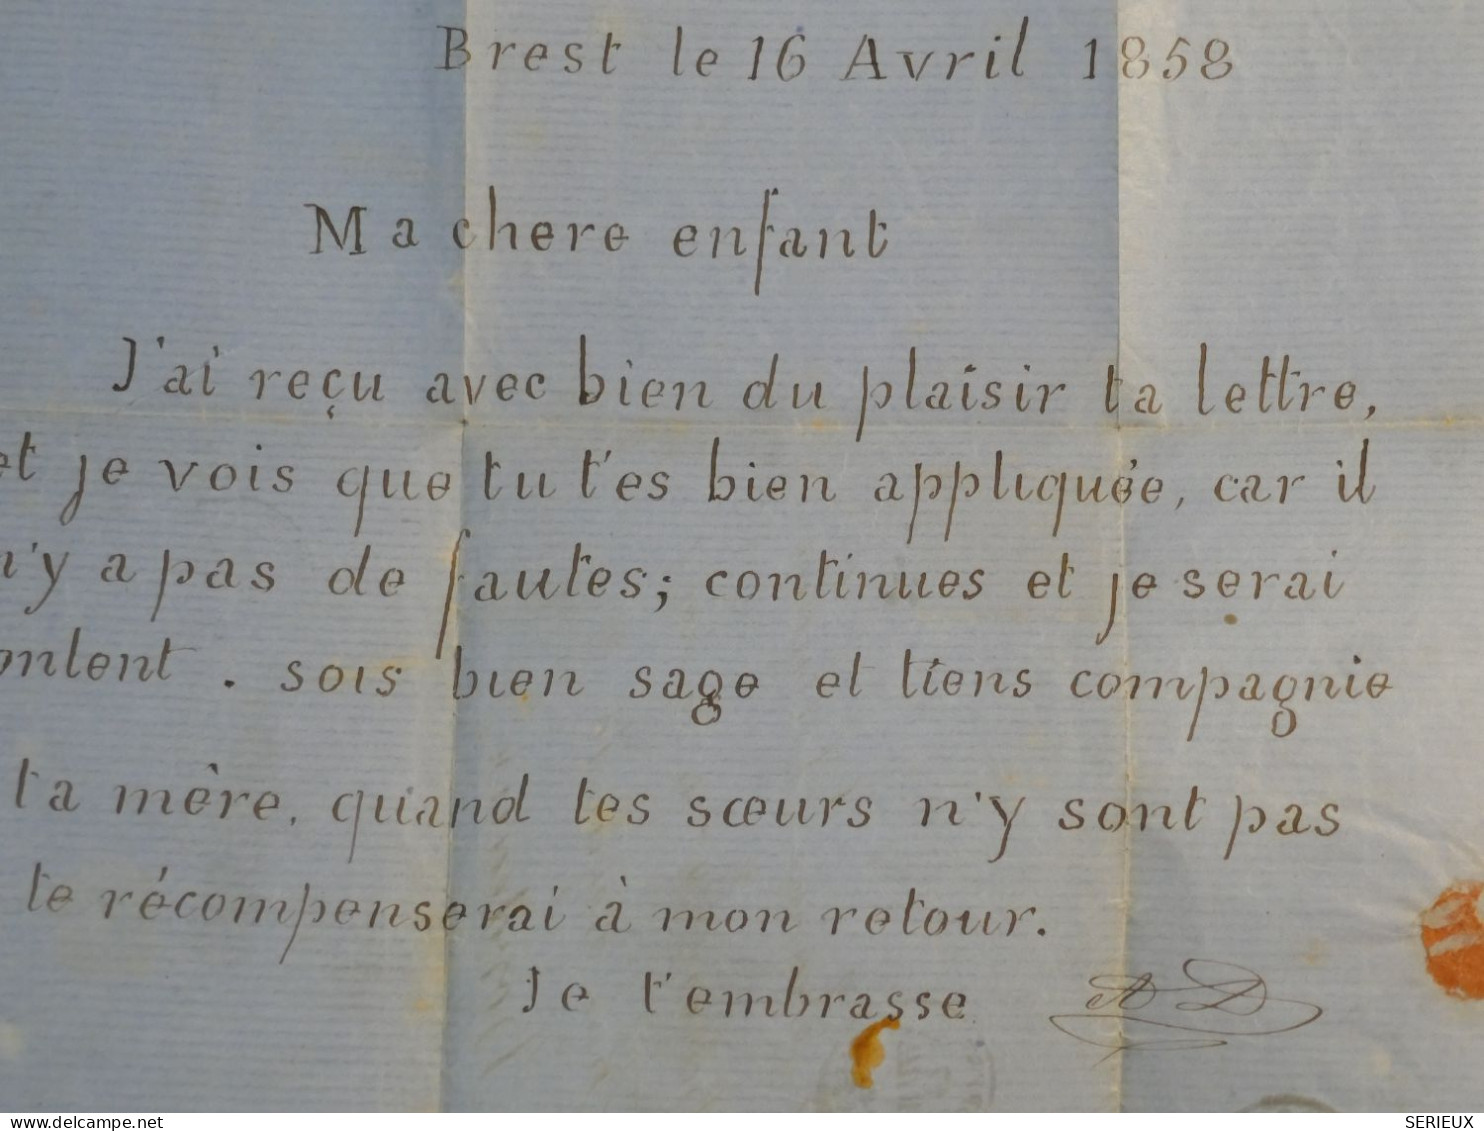 Brest le 16 Avril 1858
Ma chere enfant
J'ai reçu avec bien du plaisir ta lettre,
et je vois que tu t'es bien appliquée, car il
n'y a pas de fautes; continues et je serai
ontent. sois bien sage et tiens compagnie
ta mère, quand tes sœurs n'y sont pas
te récompenserai à mon retour.
Je t'embrasse AD
delcampe.net
SERIEUX